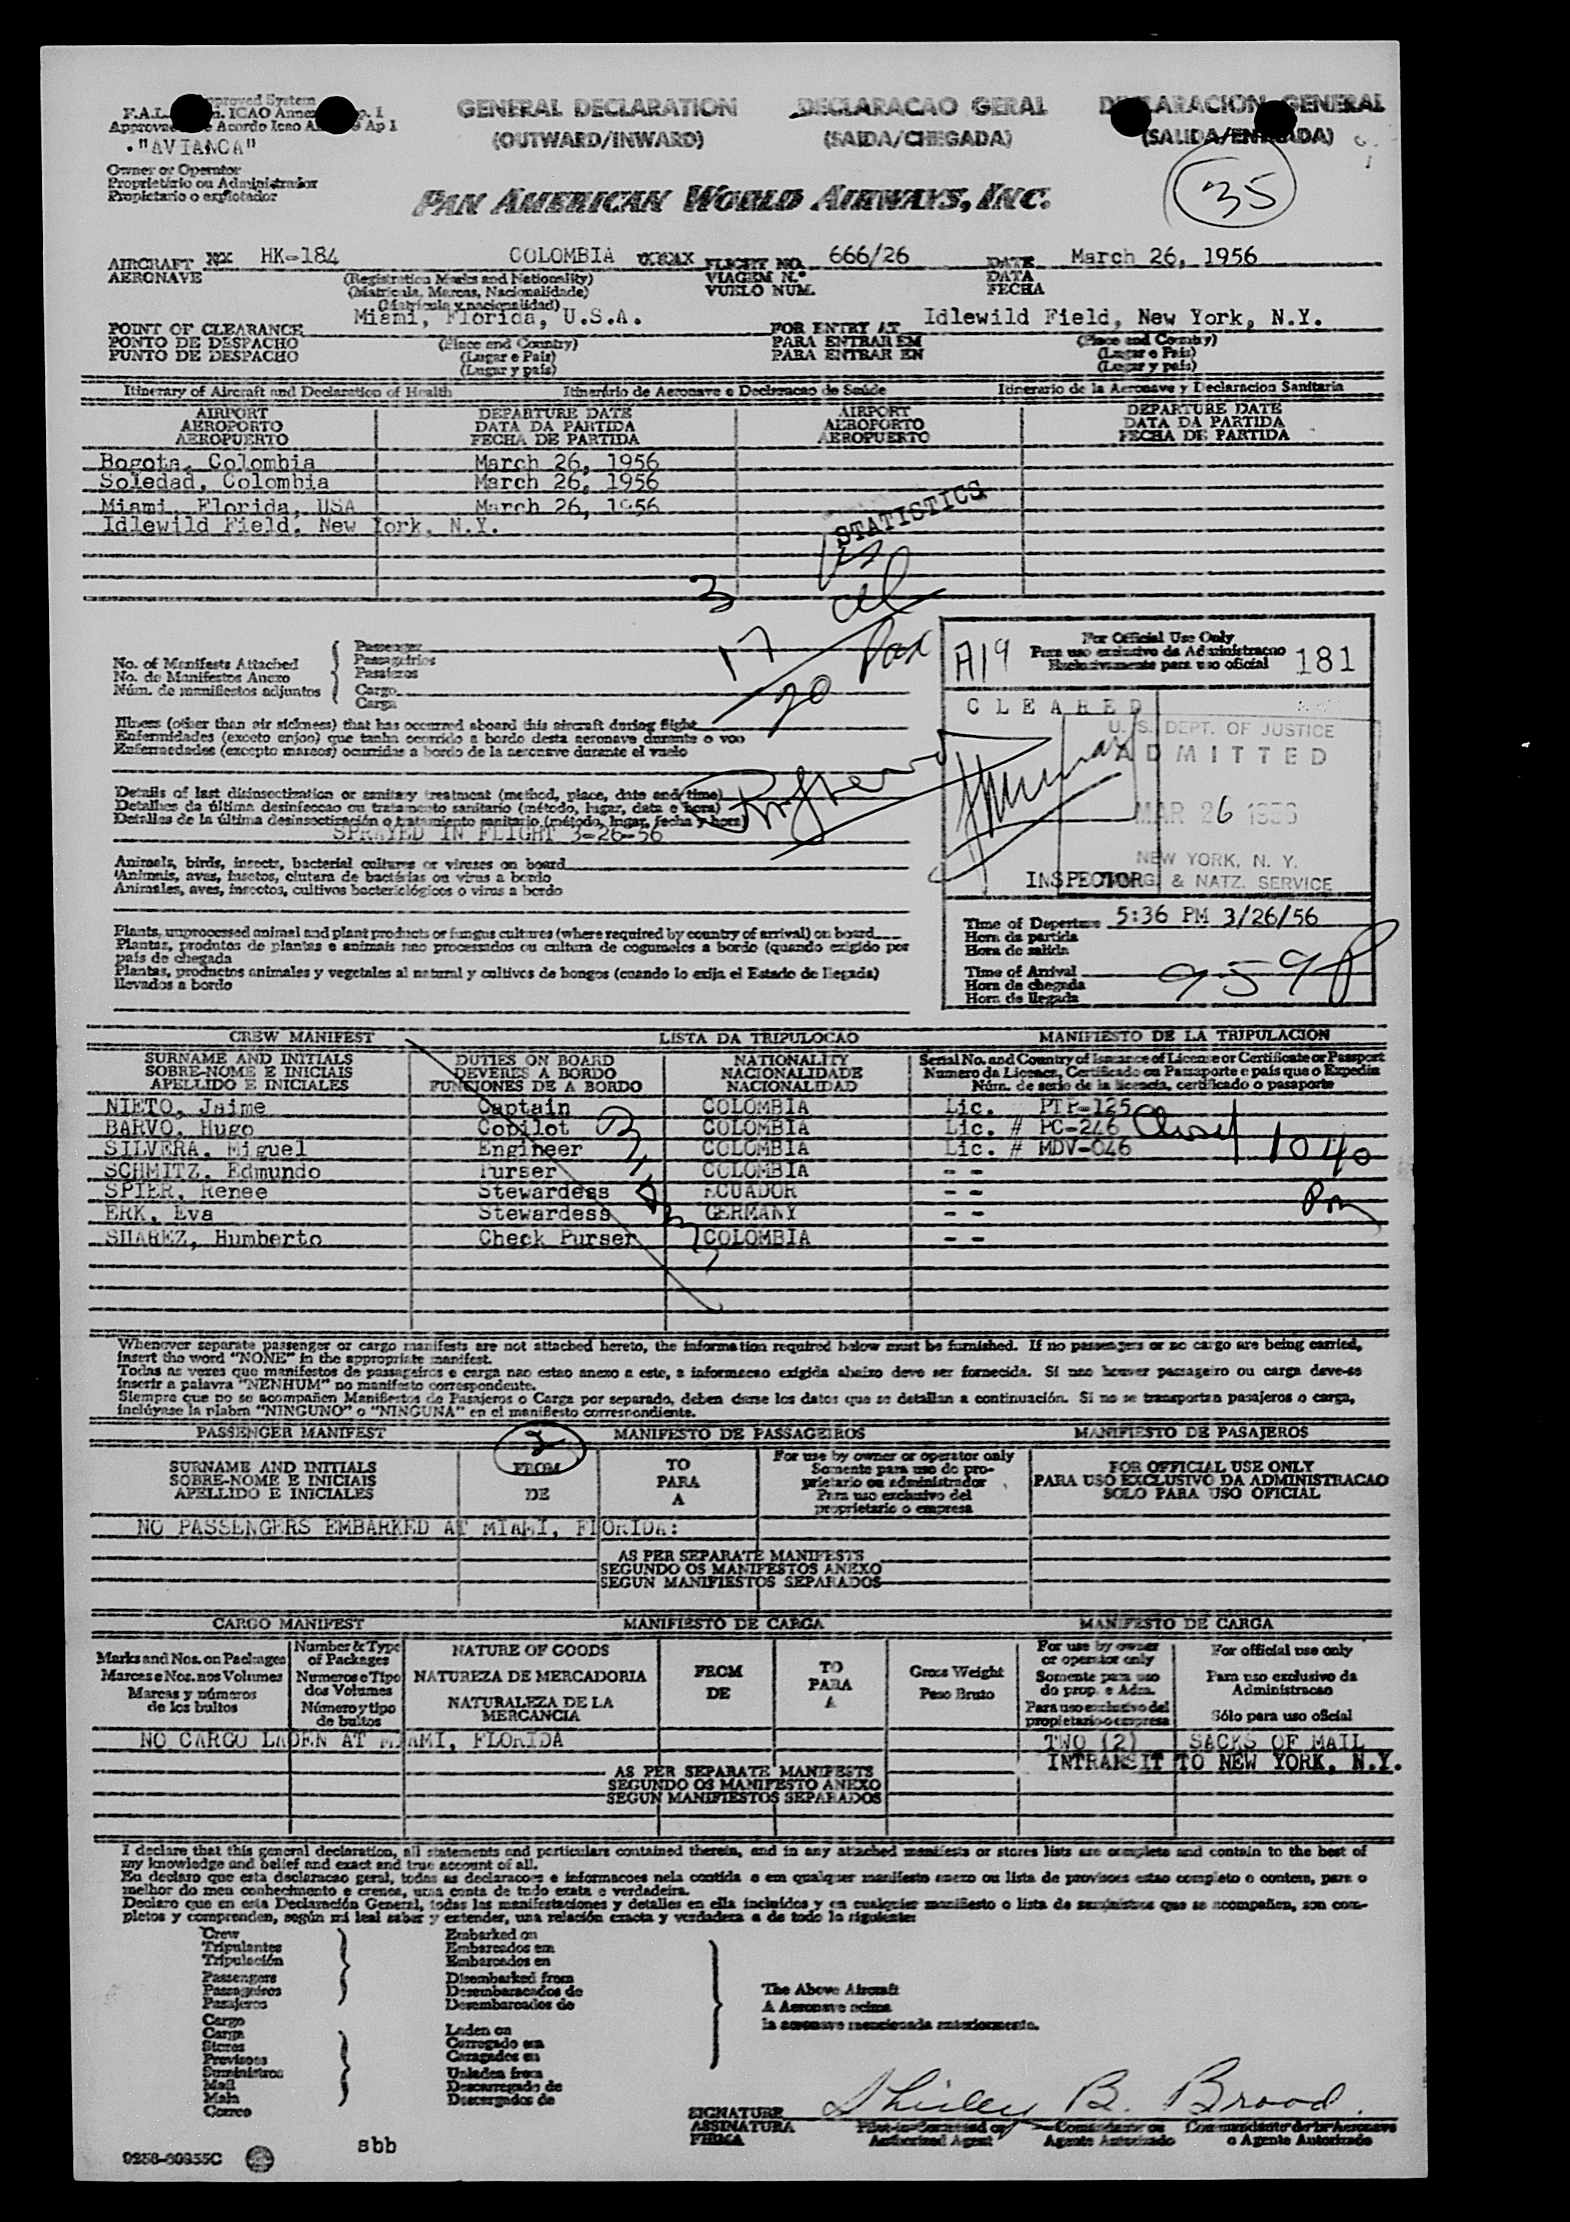 Approved System
F.A.L. ICAO Annex 1
Acordo Icao Ap 1
"AVIANCA"
Owner or Operator
Proprietário ou Administrador
Propietario o explotador
GENERAL DECLARATION
(OUTWARD/INWARD)
DECLARACAO GERAL
(SAIDA/CHEGADA)
DECLARACION GENERAL
(SALIDA/ENTRADA)
35
PAN AMERICAN WORLD AIRWAYS, INC.
AIRCRAFT HK-184 COLOMBIA FLIGHT NO. 666/26 DATE March 26, 1956
AERONAVE (Registration Marks and Nationality) VIAGEM N.° DATA
(Matricula, Marcas, Nacionalidade) VUELO NUM. FECHA
(Matricula y nacionalidad)
Miami, Florida, U.S.A. Idlewild Field, New York, N.Y.
POINT OF CLEARANCE FOR ENTRY AT
PONTO DE DESPACHO (Place and Country) PARA ENTRAR EM (Place and Country)
PUNTO DE DESPACHO (Lugar e Pais) PARA ENTRAR EN (Lugar e Pais)
(Lugar y país) (Lugar y país)
Itinerary of Aircraft and Declaration of Health Itinerário de Aeronave e Declaracao de Saúde Itinerario de la Aeronave y Declaracion Sanitaria
AIRPORT DEPARTURE DATE AIRPORT DEPARTURE DATE
AEROPORTO DATA DA PARTIDA AEROPORTO DATA DA PARTIDA
AEROPUERTO FECHA DE PARTIDA AEROPUERTO FECHA DE PARTIDA
Bogota, Colombia March 26, 1956
Soledad, Colombia March 26, 1956
Miami, Florida, USA March 26, 1956
Idlewild Field, New York, N.Y.
STATISTICS
3
17
20 Pax
No. of Manifests Attached
No. de Manifestos Anexo
Núm. de manifiestos adjuntos
Passenger
Passageiríos
Pasajeros
Cargo
Carga
Illness (other than air sickness) that has occurred aboard this aircraft during flight
Enfermidades (exceto enjoo) que tenha ocorrido a bordo desta aeronave durante o voo
Enfermedades (excepto mareos) ocurridas a bordo de la aeronave durante el vuelo
Details of last disinsectization or sanitary treatment (method, place, date and time)
Detalhes da última desinfeccao ou tratamento sanitario (método, lugar, data e hora)
Detalles de la última desinsectización o tratamiento sanitario (método, lugar, fecha y hora)
SPRAYED IN FLIGHT 3-26-56
Animals, birds, insects, bacterial cultures or viruses on board
Animais, aves, insetos, clutura de bactérias ou virus a bordo
Animales, aves, insectos, cultivos bacteriológicos o virus a bordo
Plants, unprocessed animal and plant products or fungus cultures (where required by country of arrival) on board
Plantas, produtos de plantas e animais nao processados ou cultura de cogumelos a bordo (quando exigido por
país de chegada
Plantas, productos animales y vegetales al natural y cultivos de hongos (cuando lo exija el Estado de llegada)
llevados a bordo
A19 181
For Official Use Only
Para uso exclusivo da Administracao
Exclusivamente para uso oficial
CLEARED
U. S. DEPT. OF JUSTICE
ADMITTED
MAR 26 1956
NEW YORK, N. Y.
INSPECTOR & NATZ. SERVICE
Time of Departure 5:36 PM 3/26/56
Hora da partida
Hora de salida
Time of Arrival 959P
Hora de chegada
Hora de llegada
CREW MANIFEST LISTA DA TRIPULOCAO MANIFIESTO DE LA TRIPULACION
SURNAME AND INITIALS DUTIES ON BOARD NATIONALITY Serial No. and Country of Issuance of License or Certificate or Passport
SOBRE-NOME E INICIAIS DEVERES A BORDO NACIONALIDADE Numero da Licenca, Certificado ou Passaporte e país que o Expedia
APELLIDO E INICIALES FUNCIONES DE A BORDO NACIONALIDAD Núm. de serie de la licencia, certificado o pasaporte
NIETO, Jaime Captain COLOMBIA Lic. PTP-125
BARVO, Hugo Copilot COLOMBIA Lic. # PC-246
SILVERA, Miguel Engineer COLOMBIA Lic. # MDV-046
SCHMITZ, Edmundo Purser COLOMBIA - -
SPIER, Renee Stewardess ECUADOR - -
ERK, Eva Stewardess GERMANY - -
SUAREZ, Humberto Check Purser COLOMBIA - -
1040
Pm
Whenever separate passenger or cargo manifests are not attached hereto, the information required below must be furnished. If no passengers or no cargo are being carried,
insert the word "NONE" in the appropriate manifest.
Todas as vezes que manifestos de passageiros e carga nao estao anexo a este, a informacao exigida abaixo deve ser fornecida. Si nao houver passageiro ou carga deve-se
inserir a palavra "NENHUM" no manifesto correspondente.
Siempre que no se acompañen Manifiestos de Pasajeros o Carga por separado, deben darse los datos que se detallan a continuación. Si no se transportan pasajeros o carga,
inclúyase la plabra "NINGUNO" o "NINGUNA" en el manifiesto correspondiente.
PASSENGER MANIFEST MANIFESTO DE PASSAGEIROS MANIFIESTO DE PASAJEROS
2
SURNAME AND INITIALS
SOBRE-NOME E INICIAIS
APELLIDO E INICIALES
FROM
DE
TO
PARA
A
For use by owner or operator only
Somente para uso do pro-
prietario ou administrador
Para uso exclusivo del
proprietario o empresa
FOR OFFICIAL USE ONLY
PARA USO EXCLUSIVO DA ADMINISTRACAO
SOLO PARA USO OFICIAL
NO PASSENGERS EMBARKED AT MIAMI, FLORIDA:
AS PER SEPARATE MANIFESTS
SEGUNDO OS MANIFESTOS ANEXO
SEGUN MANIFIESTOS SEPARADOS
CARGO MANIFEST MANIFIESTO DE CARGA MANIFESTO DE CARGA
Marks and Nos. on Packages
Marcas e Nos. nos Volumes
Marcas y números
de los bultos
Number & Type
of Packages
Numeros e Tipo
dos Volumes
Número y tipo
de bultos
NATURE OF GOODS
NATUREZA DE MERCADORIA
NATURALEZA DE LA
MERCANCIA
FROM
DE
TO
PARA
A
Gross Weight
Peso Bruto
For use by owner
or operator only
Somente para uso
do prop. e Adm.
Para uso exclusivo del
propietario o empresa
For official use only
Para uso exclusivo da
Administracao
Sólo para uso oficial
NO CARGO LADEN AT MIAMI, FLORIDA TWO (2) SACKS OF MAIL
INTRANSIT TO NEW YORK, N.Y.
AS PER SEPARATE MANIFESTS
SEGUNDO OS MANIFESTO ANEXO
SEGUN MANIFIESTOS SEPARADOS
I declare that this general declaration, all statements and particulars contained therein, and in any attached manifests or stores lists are complete and contain to the best of
my knowledge and belief and exact and true account of all.
Eu declaro que esta declaracao geral, todas as declaracoes e informacoes nela contida e em qualquer manifesto anexo ou lista de provisoes estao completo e contem, para o
melhor do meu conhecimento e crenca, uma conta de tudo exata e verdadeira.
Declaro que en esta Declaración General, todas las manifestaciones y detalles en ella incluidos y en cualquier manifiesto o lista de suministros que se acompañen, son com-
pletos y comprenden, según mi leal saber y entender, una relación exacta y verdadera a de todo lo siguiente:
Crew
Tripulantes
Tripulación
Passengers
Passageiros
Pasajeros
Cargo
Carga
Stores
Provisoes
Suministros
Mail
Mala
Correo
Embarked on
Embarcados em
Embarcados en
Disembarked from
Desembaracados de
Desembarcados de
Laden on
Carregado em
Caragados en
Unladen from
Descarregado de
Descargados de
The Above Aircraft
A Aeronave acima
la aeronave mencionada anteriormente.
Shirley B. Brood.
SIGNATURE
ASSINATURA
FIRMA
Pilot-in-Command or
Authorized Agent
Comandante ou
Agente Autorizado
Commandante de la Aeronave
o Agente Autorizado
sbb
0258-60955C